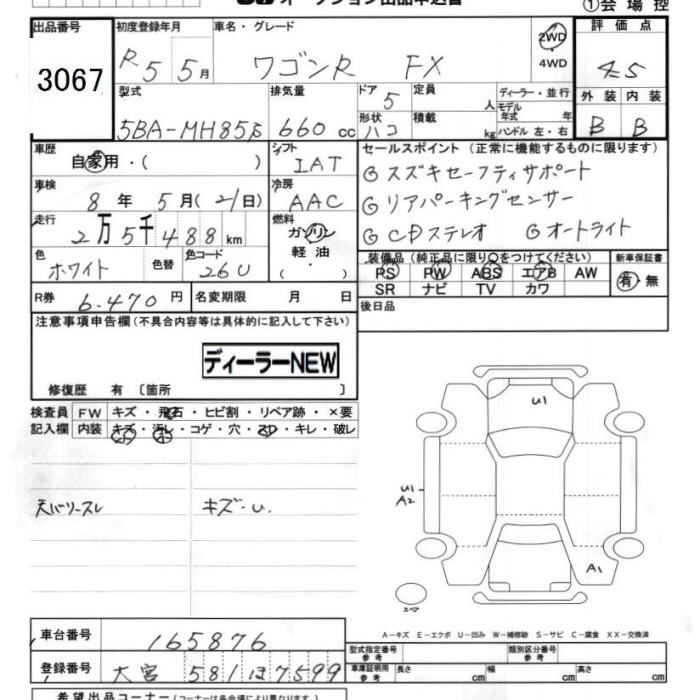 オークション出品申込書
①会場控
出品番号 3067
初度登録年月 R5年5月
車名・グレード ワゴンR FX
2WD
4WD
評価点 4.5
外装 内装
B B
型式 5BA-MH85S
排気量 660cc
ドア 5
形状 ハコ
定員 人
積載 kg
ディーラー・並行
モデル年式 年
ハンドル 左・右
車歴 自家用・( )
シフト IAT
セールスポイント (正常に機能するものに限ります)
車検 8年 5月(21日)
冷房 AAC
◎スズキセーフティサポート
◎リアパーキングセンサー
走行 2万5千488km
燃料 ガソリン
軽油・
( )
◎CDステレオ ◎オートライト
色 ホワイト
色替
色コード 26U
装備品 (純正品に限り○をつけてください)
新車保証書
PS PW ABS エアB AW
有・無
SR ナビ TV カワ
R券 6,470円
名変期限 月 日
後日品
注意事項申告欄 (不具合内容等は具体的に記入して下さい)
ディーラーNEW
修復歴 有 〔箇所 〕
検査員 FW キズ・飛石・ヒビ割・リペア跡・×要
記入欄 内装 キズ・汚レ・コゲ・穴・スレ・キレ・破レ
天バリスレ
キズ・U
U1
U1
A2
A1
スペア
A-キズ E-エクボ U-凹み W-補修跡 S-サビ C-腐食 XX-交換済
車台番号 165876
型式指定番号 参考
類別区分番号 参考
登録番号 大宮 581 ほ 7599
車庫証明用 参考
長さ cm 幅 cm 高さ cm
希望出品コーナー (コーナーは各会場により異なります)